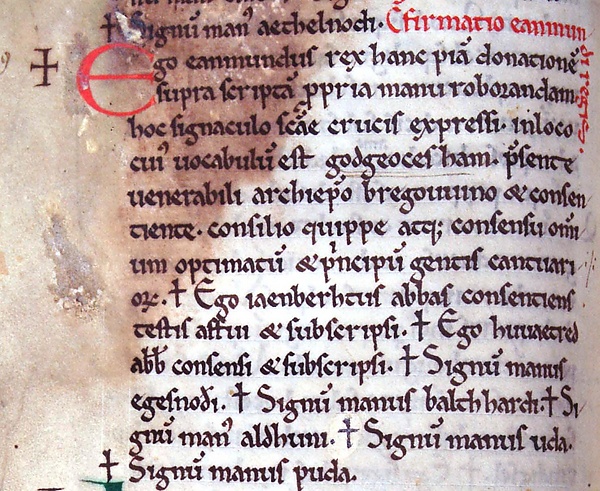 ✝ Signũ man᾽ aethelnodi. Cfirmatio eanmun
✝ Ego eanmundus rex hanc piã donationẽ di regis.
supra scriptã ppria manu roborandam.
hoc signaculo scãe crucis expressi. inloco
cui᾽ uocabulũ est godgeoces ham. p̃sente
uenerabili archiep̃o bregouuino & consen
tiente. consilio quippe atq; consensu om̃i
um optimatũ & p̃ncipũ gentis cantuari
orᷣ. ✝ Ego iaenberhtus abbas consentiens
testis astiti & subscripsi. ✝ Ego huuaetred
abƀ consensi & subscripsi. ✝ Signũ manus
egesnodi. ✝ Signũ manus balthhardi. ✝ Si
gnũ man᾽ aldhuni. ✝ Signũ manus uda.
✝ Signũ manus puda.